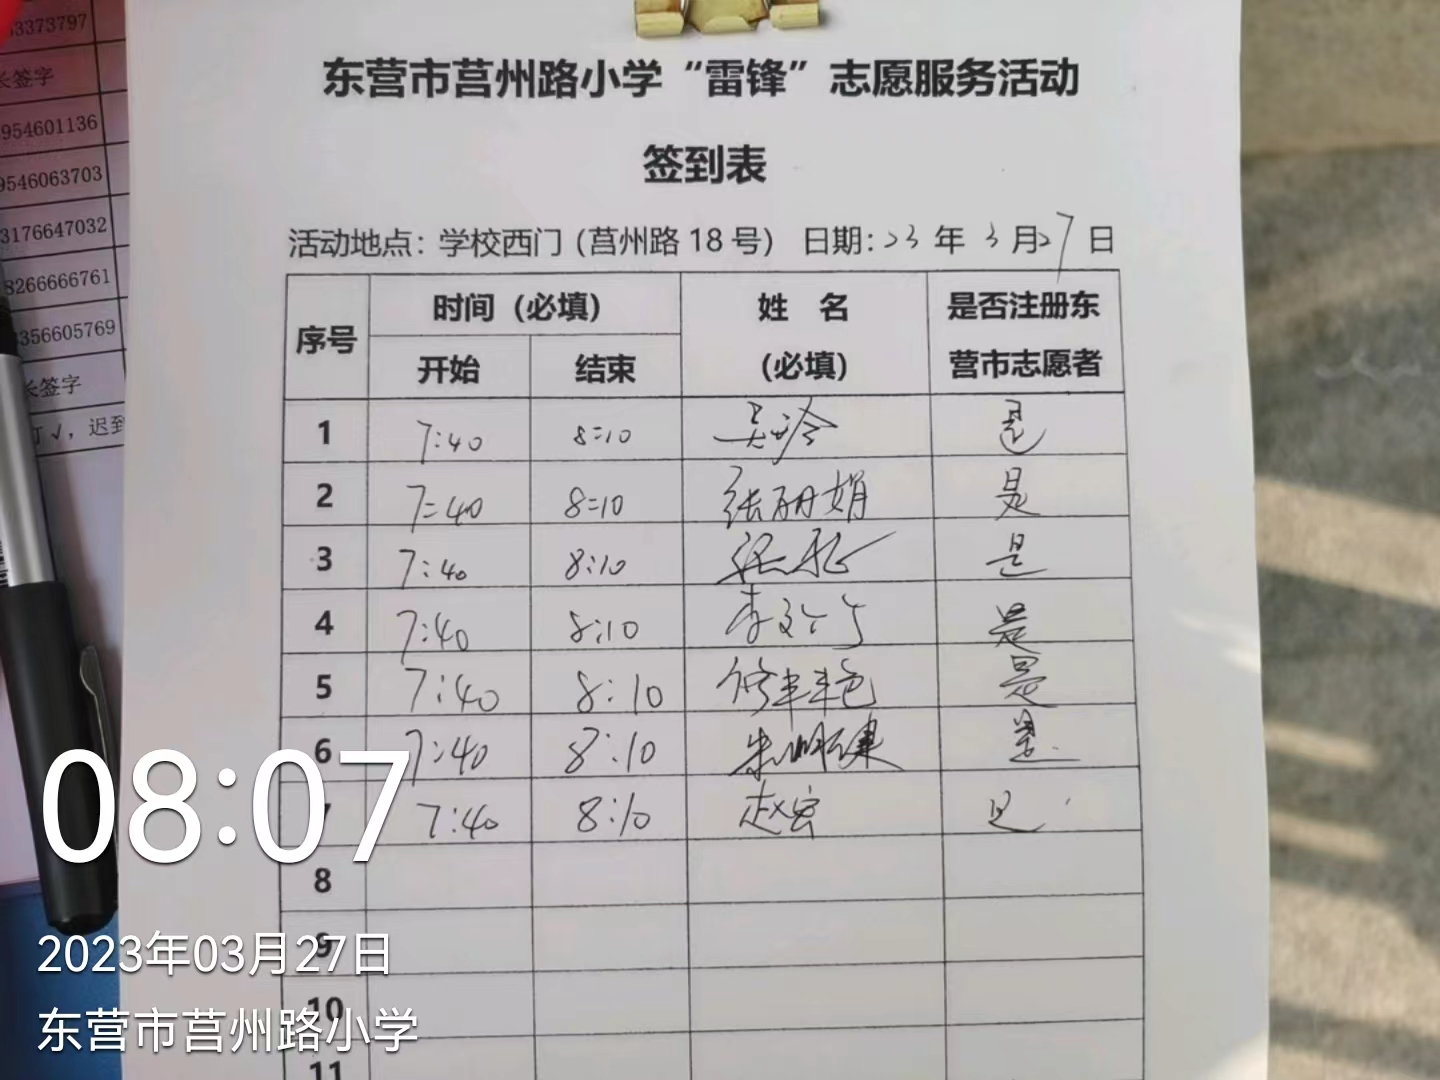 53373797
长签字
954601136
9546063703
3176647032
8266666761
3356605769
长签字
打√，迟到
东营市莒州路小学“雷锋”志愿服务活动
签到表
活动地点：学校西门（莒州路 18 号） 日期：23 年 3 月 27 日
序号 时间（必填） 姓 名（必填） 是否注册东营市志愿者
开始 结束
1 7:40 8:10 是
2 7:40 8:10 张丽娟 是
3 7:40 8:10 是
4 7:40 8:10 是
5 7:40 8:10 是
6 7:40 8:10 是
7 7:40 8:10 赵宏 是
8
9
10
11
08:07
2023年03月27日
东营市莒州路小学